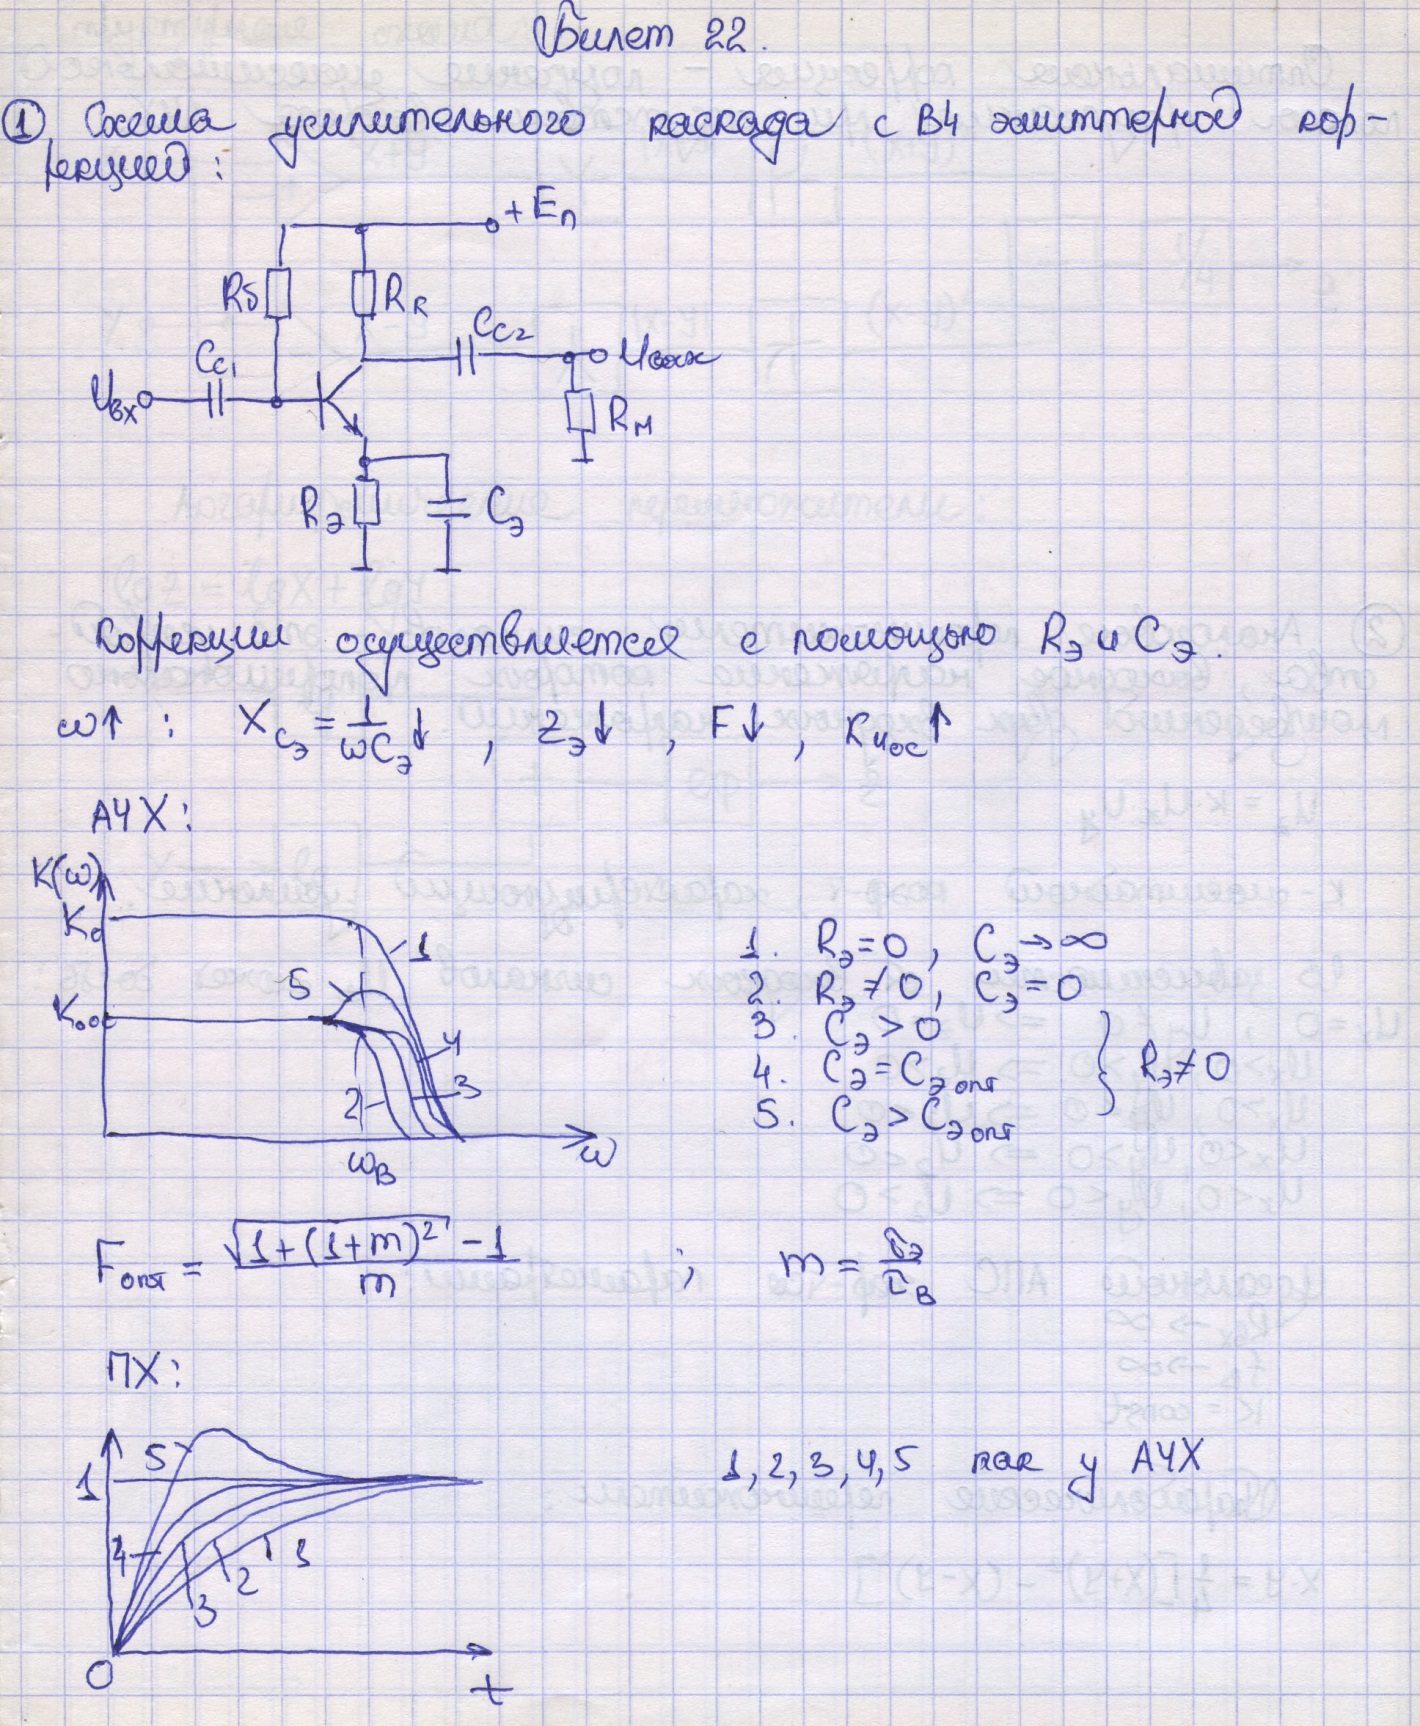 Билет 22.
① Схема усилительного каскада с ВЧ эмиттерной кор-
рекцией:
+ Eп
Rб
Rк
Cc2
Cc1
Uвых
Uвх
Rн
Rэ
Cэ
Коррекции осуществляется с помощью Rэ и Cэ.
ω↑ : Xcэ = 1/ωCэ ↓ , Zэ↓ , F↓ , Kиос↑
АЧХ:
K(ω)
K₀
1
5
Kоос
1. Rэ=0, Cэ→∞
2. Rэ≠0, Cэ=0
3. Cэ>0
4. Cэ=Cэопт
5. Cэ>Cэопт
} Rэ≠0
4
3
2
ωв
ω
Fопт = (√(1+(1+m)²) -1)/m ; m = τэ/τв
ПХ:
5
1
1,2,3,4,5 как у АЧХ
4
1
2
3
0
t